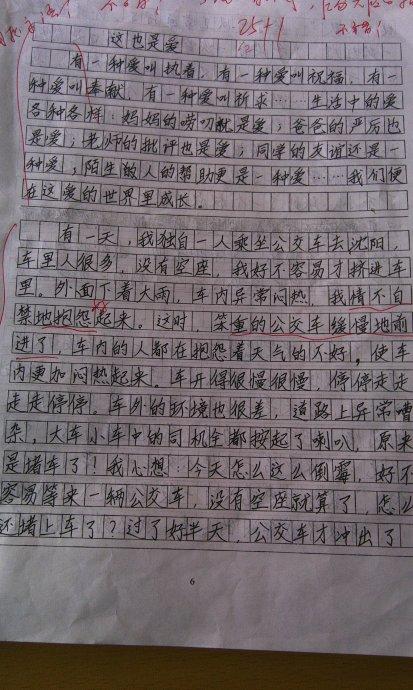 25+1
这也是爱
有一种爱叫执着，有一种爱叫祝福，有一
种爱叫奉献，有一种爱叫祈求……生活中的爱
各种各样：妈妈的唠叨就是爱；爸爸的严厉也
是爱；老师的批评也是爱；同学的友谊还是一
种爱；陌生的人的帮助更是一种爱……我们便
在这爱的世界里成长。
有一天，我独自一人乘坐公交车去沈阳，
车里人很多，没有空座，我好不容易才挤进车
里。外面下着大雨，车内异常闷热，我情不自
禁地抱怨起来。这时，笨重的公交车缓慢地前
进了，车内的人都在抱怨着天气的不好，使车
内更加闷热起来。车开得很慢很慢，停停走走
走走停停。车外的环境也很差，道路上异常嘈
杂，大车小车中的司机全都按起了喇叭，原来
是堵车了！我心想：今天怎么这么倒霉，好不
容易等来一辆公交车，没有空座就算了，怎么
还堵上车了？过了好半天，公交车才冲出了
6